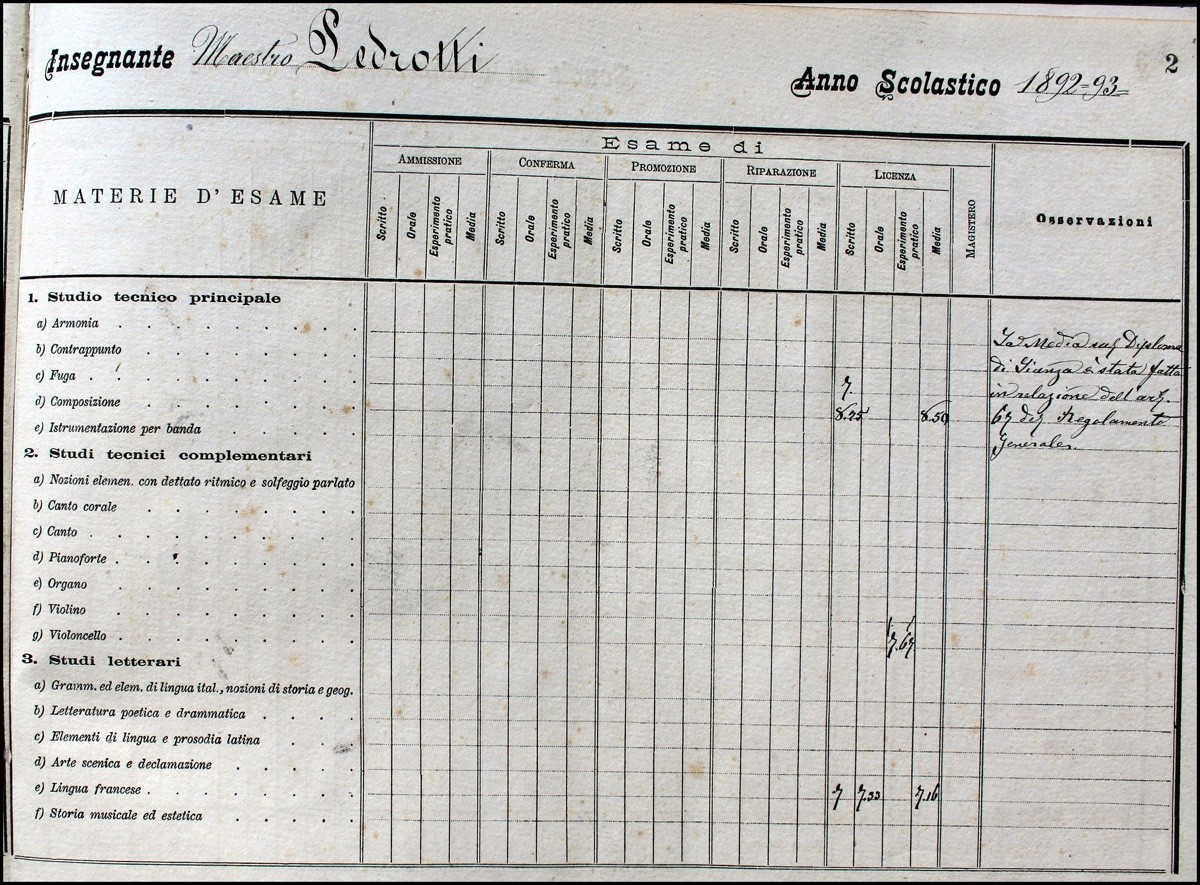 Insegnante Maestro Pedrotti
Anno Scolastico 1892=93=
2
MATERIE D'ESAME
Esame di
AMMISSIONE CONFERMA PROMOZIONE RIPARAZIONE LICENZA
Scritto Orale Esperimento pratico Media Scritto Orale Esperimento pratico Media Scritto Orale Esperimento pratico Media Scritto Orale Esperimento pratico Media Scritto Orale Esperimento pratico Media
MAGISTERO
Osservazioni
1. Studio tecnico principale
a) Armonia
b) Contrappunto
c) Fuga 7.
d) Composizione 8.25 8.50
e) Istrumentazione per banda
La Media sul Diploma
di Licenza è stata fatta
in relazione dell'art.
67 del Regolamento
Generale.
2. Studi tecnici complementari
a) Nozioni elemen. con dettato ritmico e solfeggio parlato
b) Canto corale
c) Canto
d) Pianoforte
e) Organo
f) Violino
g) Violoncello 7.67
3. Studi letterari
a) Gramm. ed elem. di lingua ital., nozioni di storia e geog.
b) Letteratura poetica e drammatica
c) Elementi di lingua e prosodia latina
d) Arte scenica e declamazione
e) Lingua francese 7 7.33 7.16
f) Storia musicale ed estetica